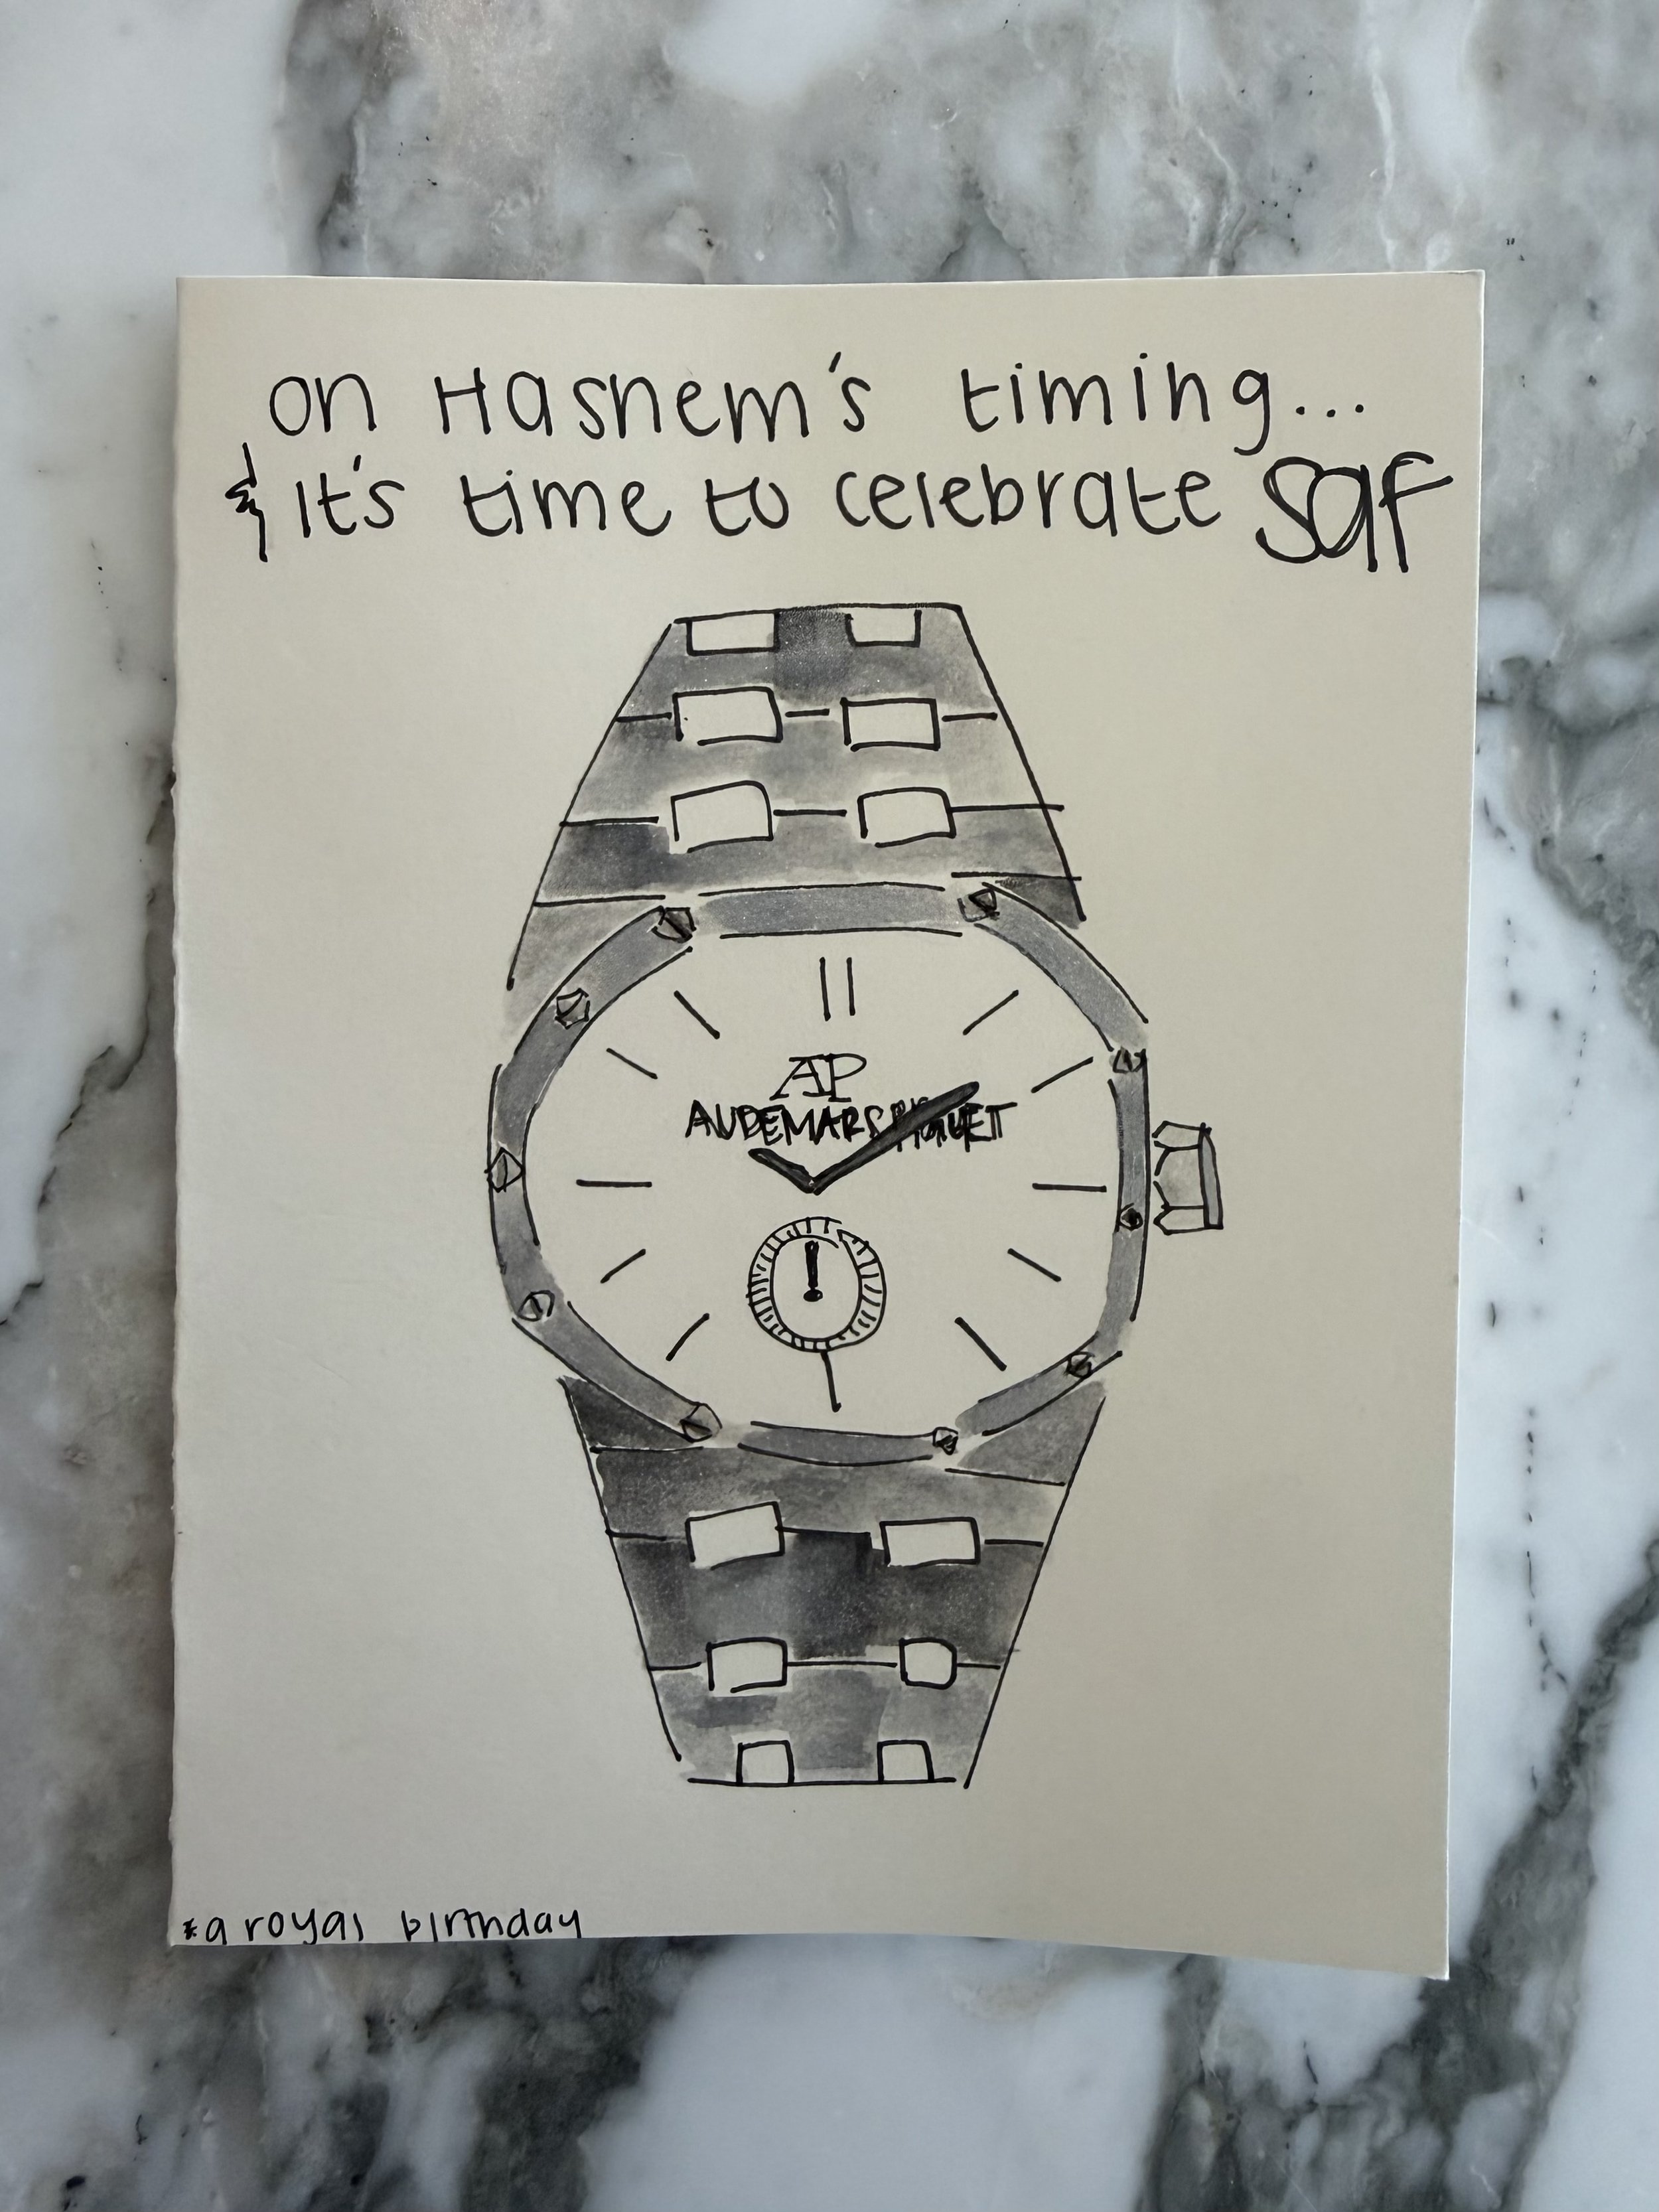 on Hashem's timing...
& It's time to celebrate Saf
AP
AUDEMARS PIGUET
*a royal birthday